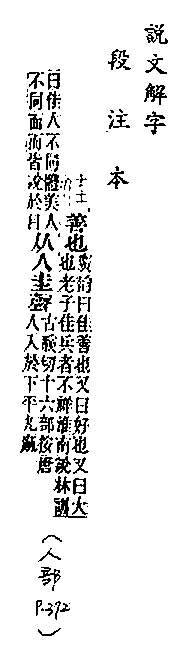 說文解字
段注本
善也廣韵曰佳善也又曰好也又曰大
也老子佳兵者不祥淮南說林訓
曰佳人不同體美人
不同面而皆說於目
从人圭聲古膎切十六部按唐
人入於下平九麻
(人部 P.372)